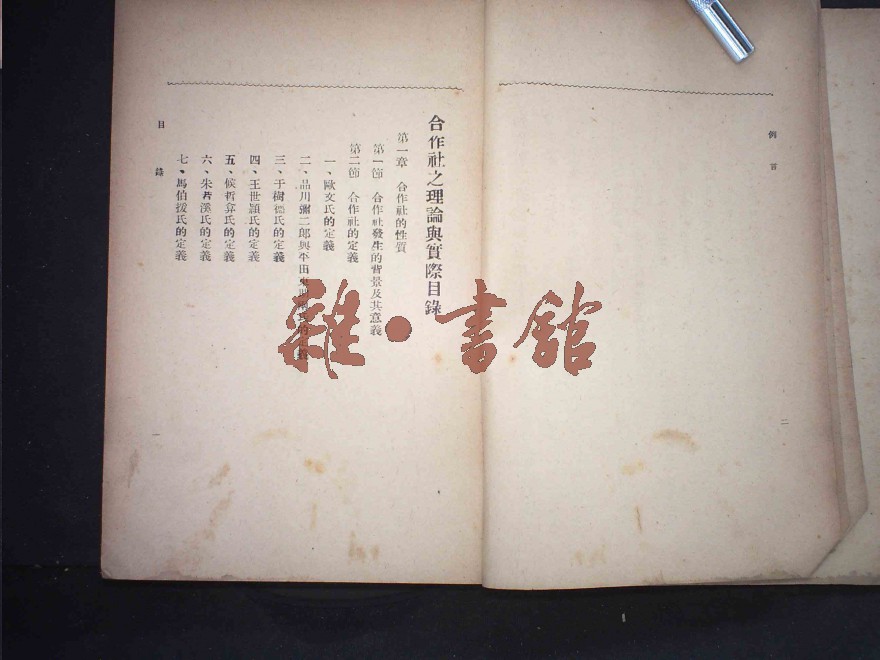 例言
二
合作社之理論與實際目錄
第一章 合作社的性質
第一節 合作社發生的背景及其意義
第二節 合作社的定義
一、歐文氏的定義
二、品川彌二郎與平田東 的定義
三、于樹德氏的定義
四、王世穎氏的定義
五、侯哲葊氏的定義
六、朱若溪氏的定義
七、馬伯援氏的定義
目錄
一
雜·書館